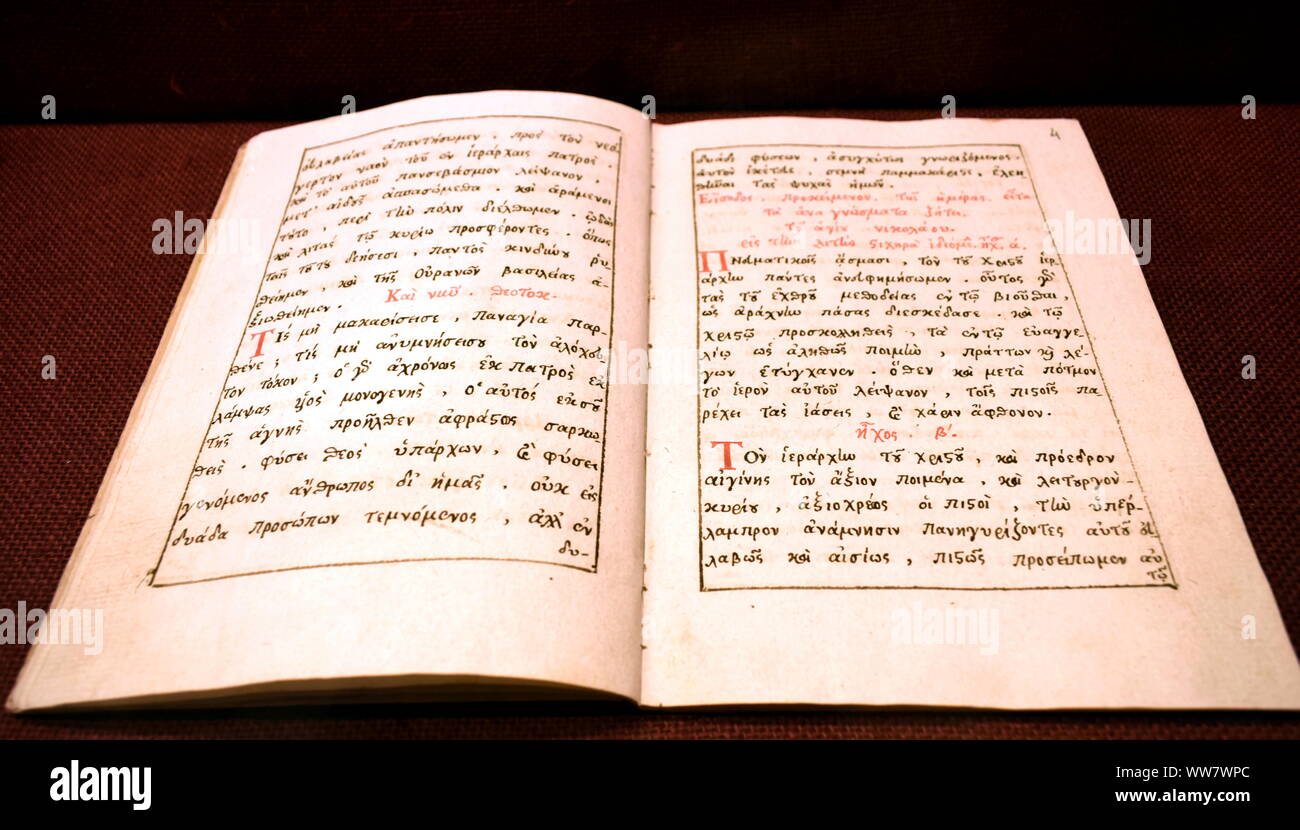 ὐλαβείας ἀπαντήσωμεν . πρὸς τὸν νεό
γερτον ναὸν τοῦ ἐν ἱεράρχαις πατρός .
καὶ τὸ αὐτοῦ πανσεβάσμιον λείψανον ,
μετ' αἰδοῦς ἀσπασόμεθα . καὶ ἀράμενοι
τοῦτο , περὶ τὴν πόλιν διέλθωμεν . ᾠδὰς
καὶ λιτὰς τῷ κυρίῳ προσφέροντες . ὅπως
ταῖς τούτου δεήσεσι , παντὸς κινδύνου ῥυ-
σθείημεν , καὶ τῆς Οὐρανῶν βασιλείας ἀ-
ξιωθείημεν .
Καὶ νῦν . θεοτοκ-
Τίς μὴ μακαρίσει σε , παναγία παρ-
θένε ; τίς μὴ ἀνυμνήσει σου τὸν ἀλόχευ
τον τόκον ; ὁ γὰρ ἀχρόνως ἐκ πατρὸς ἐκ
λάμψας υἱὸς μονογενής , ὁ αὐτὸς ἐκ σοῦ
τῆς ἁγνῆς προῆλθεν ἀφράστως σαρκω
θείς . φύσει θεὸς ὑπάρχων , καὶ φύσει
γενόμενος ἄνθρωπος δι' ἡμᾶς . οὐκ εἰς
δυάδα προσώπων τεμνόμενος , ἀλλ' ἐν
δυ-
4
δυάδι φύσεων , ἀσυγχύτως γνωριζόμενος .
αὐτὸν ἱκέτευε , σεμνὴ παμμακάριστε , ἐλεη
θῆναι τὰς ψυχὰς ἡμῶν .
Εἴσοδος . προκείμενον . τῆς ἡμέρας . εἶτα
τὰ ἀναγνώσματα ζήτει
τοῦ ἁγίου νικολάου .
εἰς τὴν λιτὴν στιχηρὰ ἰδιόμελα . ἦχ. α.
Πνευματικοῖς ᾄσμασι , τὸν τοῦ χριστοῦ ἱερ
άρχην πάντες ἀνευφημήσωμεν . οὗτος γὰρ
τὰς τοῦ ἐχθροῦ μεθοδείας ἐν τῷ βίῳ οὖσαι ,
ὡς ἀράχνην πάσας διεσκέδασε . καὶ τῷ
χριστῷ προσκολληθείς , τὰ ἐν τῷ εὐαγγε-
λίῳ ὡς ἀληθῶς ποιμήν , πράττων καὶ λέ-
γων ἐτύγχανεν . ὅθεν καὶ μετὰ πότμον
τὸ ἱερὸν αὐτοῦ λείψανον , τοῖς πιστοῖς πα
ρέχει τὰς ἰάσεις , καὶ χάριν ἄφθονον .
ἦχος . β'.
Τὸν ἱεράρχην τοῦ χριστοῦ , καὶ πρόεδρον
αἰγίνης τὸν ἄξιον ποιμένα , καὶ λειτουργὸν
κυρίου , ἀξιοχρέως οἱ πιστοί , τὴν ὑπέρ-
λαμπρον ἀνάμνησιν πανηγυρίζοντες αὐτοῦ εὐ
λαβῶς καὶ αἰσίως , πιστῶς προσείπωμεν αὐ
τῷ
alamy
Image ID: WW7WPC
www.alamy.com